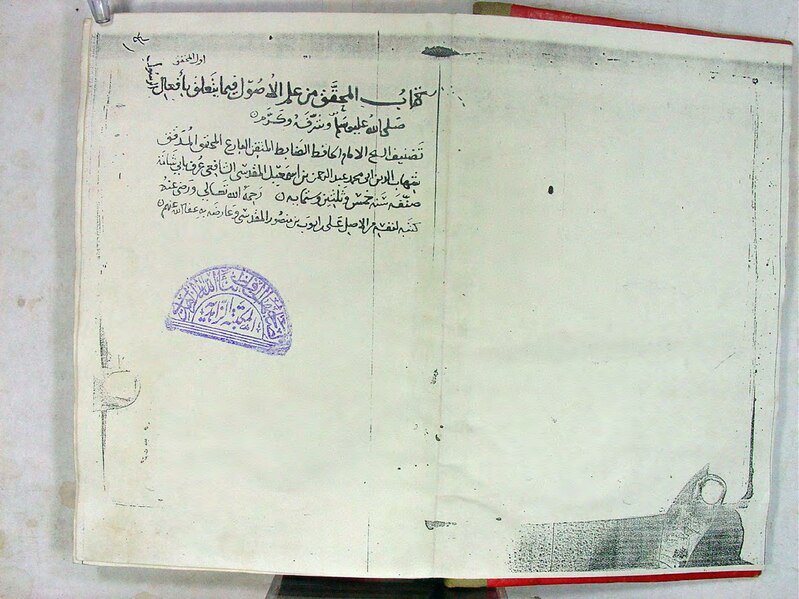 اول المحقق
كتاب المحقق من علم الاصول فيما يتعلق بأفعال الرسول
صلى الله عليه وسلم وشرفه وكرم
تصنيف الشيخ الامام الحافظ الضابط المتقن البارع المحقق المدقق
شهاب الدين ابى محمد عبد الرحمن بن اسمعيل المقدسى الشافعى عرف بابى شامة
صنفه سنة خمس وثلثين وستمايه رحمه الله تعالى ورضى عنه
كتبه لنفسه من الاصل على ايوب بن منصور المقدسى وعارضه به عفا الله عنهم
المكتبة الزاهدية